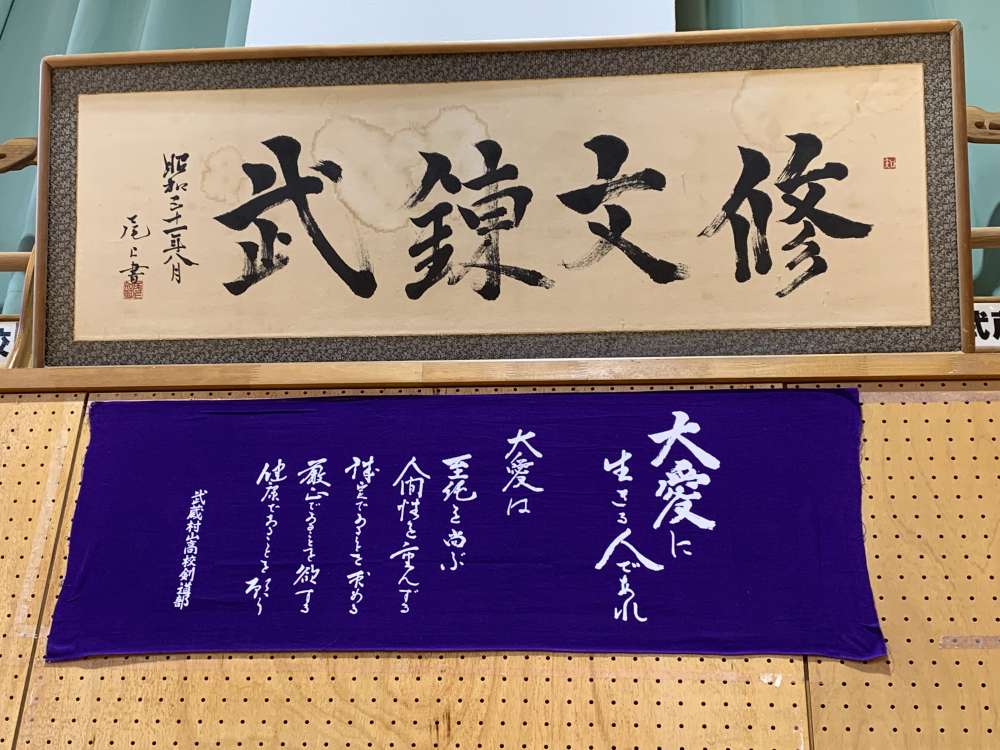 修文錬武
昭和三十一年八月
尾上書
大愛に
生きる人であれ
大愛は
至純を尚ぶ
人間性を重んずる
誠実であることを求める
厳正であることを欲する
健康であることを願う
武蔵村山高校剣道部
校
武道